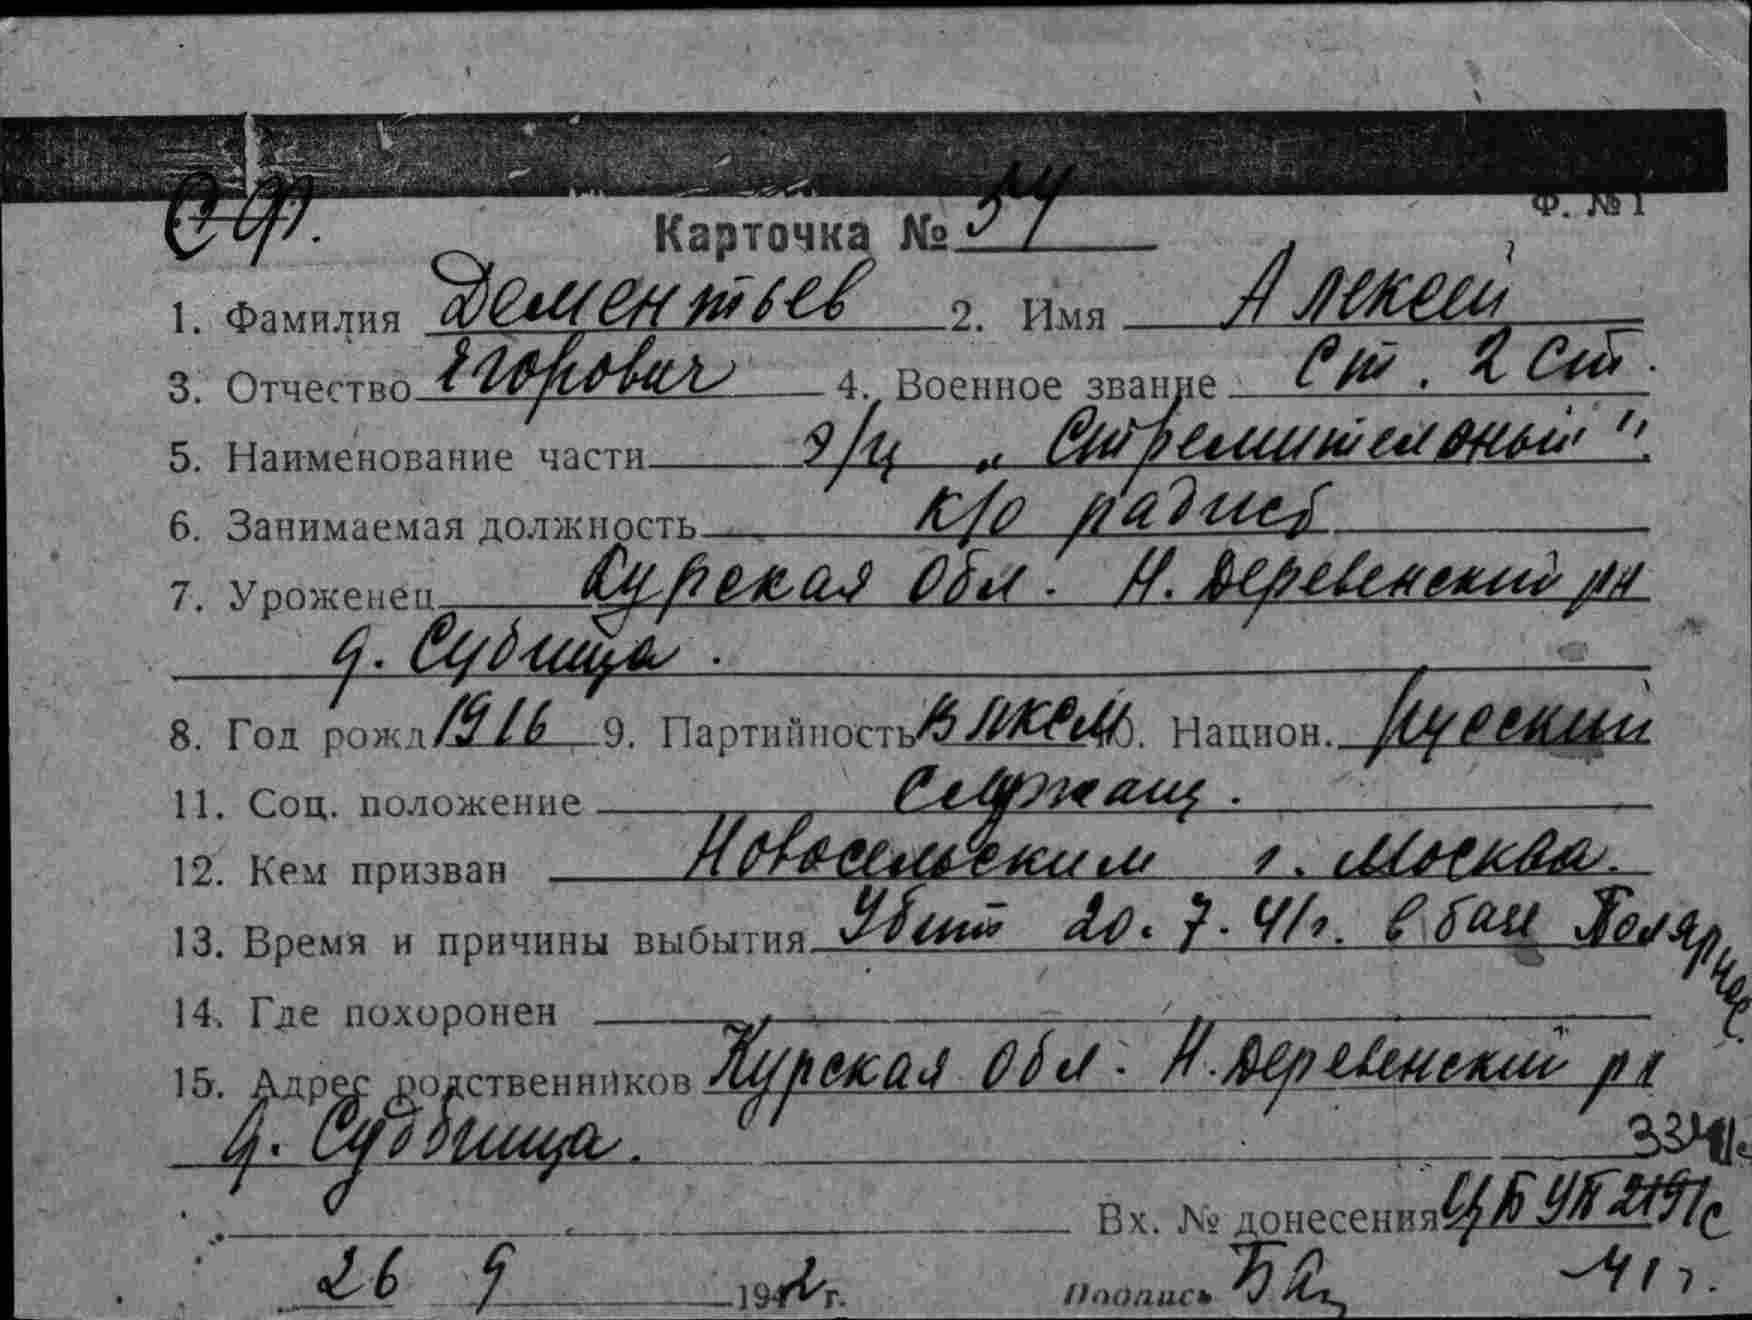 СФ.
Ф. № 1
Карточка № 54
1. Фамилия Дементьев 2. Имя Алексей
3. Отчество Егорович 4. Военное звание Ст. 2 Ст.
5. Наименование части э/м „Стремительный".
6. Занимаемая должность к/о радист
7. Уроженец Курская Обл. Н. Деревенский рн
д. Суббница.
8. Год рожд 1916 9. Партийность ВЛКСМ 10. Национ. русский
11. Соц. положение Служащ.
12. Кем призван Новосельским г. Москва.
13. Время и причины выбытия Убит 20.7.41г. в базе Полярное.
14. Где похоронен
15. Адрес родственников Курская Обл. Н. Деревенский рн
д. Суббница.
Вх. № донесения ЦБ УП
26 9 1942 г. Подпись 41 г.